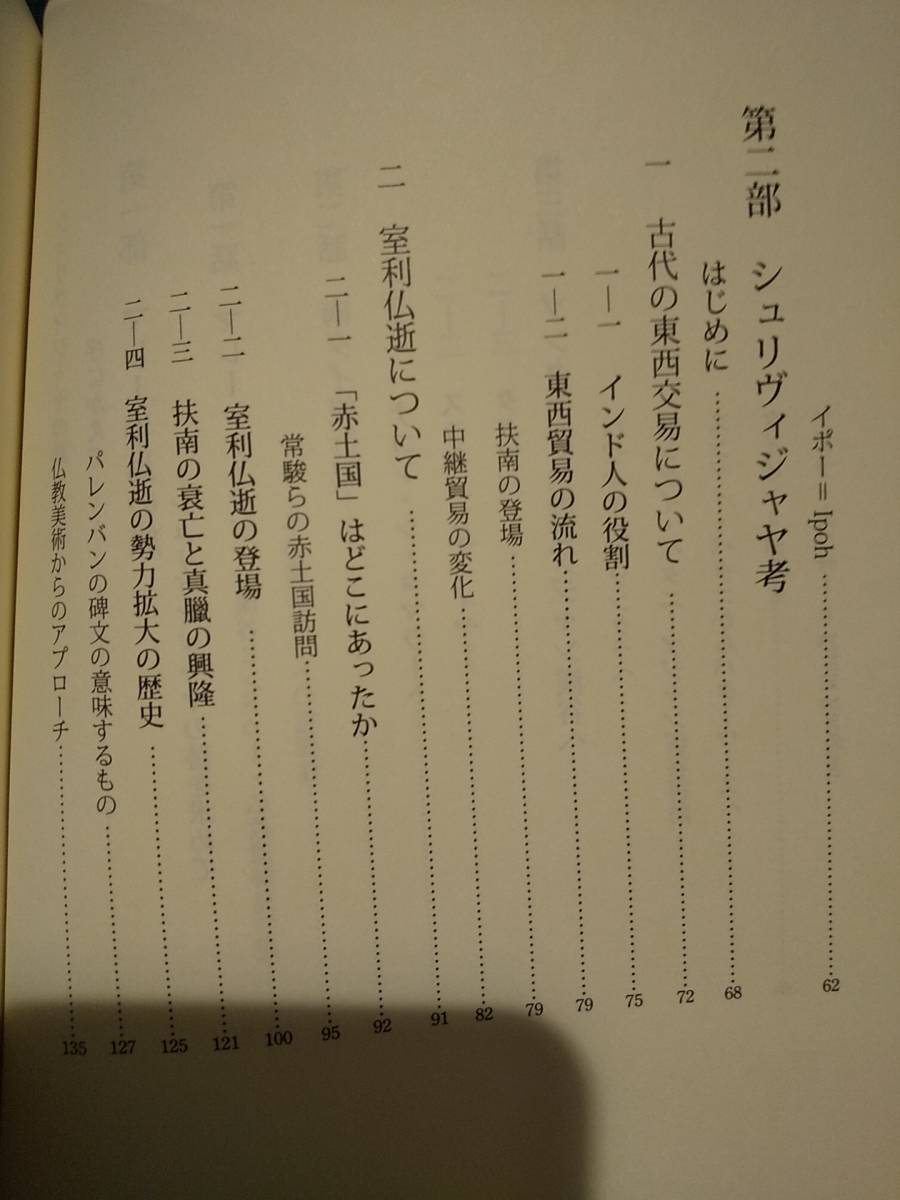 イポー＝Ipoh ……………… 62
第二部　シュリヴィジャヤ考
はじめに ……………… 68
一　古代の東西交易について ……………… 72
一―一　インド人の役割 ……………… 75
一―二　東西貿易の流れ ……………… 79
扶南の登場 ……………… 79
中継貿易の変化 ……………… 82
二　室利仏逝について ……………… 91
二―一　「赤土国」はどこにあったか ……………… 92
常駿らの赤土国訪問 ……………… 95
二―二　室利仏逝の登場 ……………… 100
二―三　扶南の衰亡と真臘の興隆 ……………… 121
二―四　室利仏逝の勢力拡大の歴史 ……………… 125
パレンバンの碑文の意味するもの ……………… 127
仏教美術からのアプローチ ……………… 135